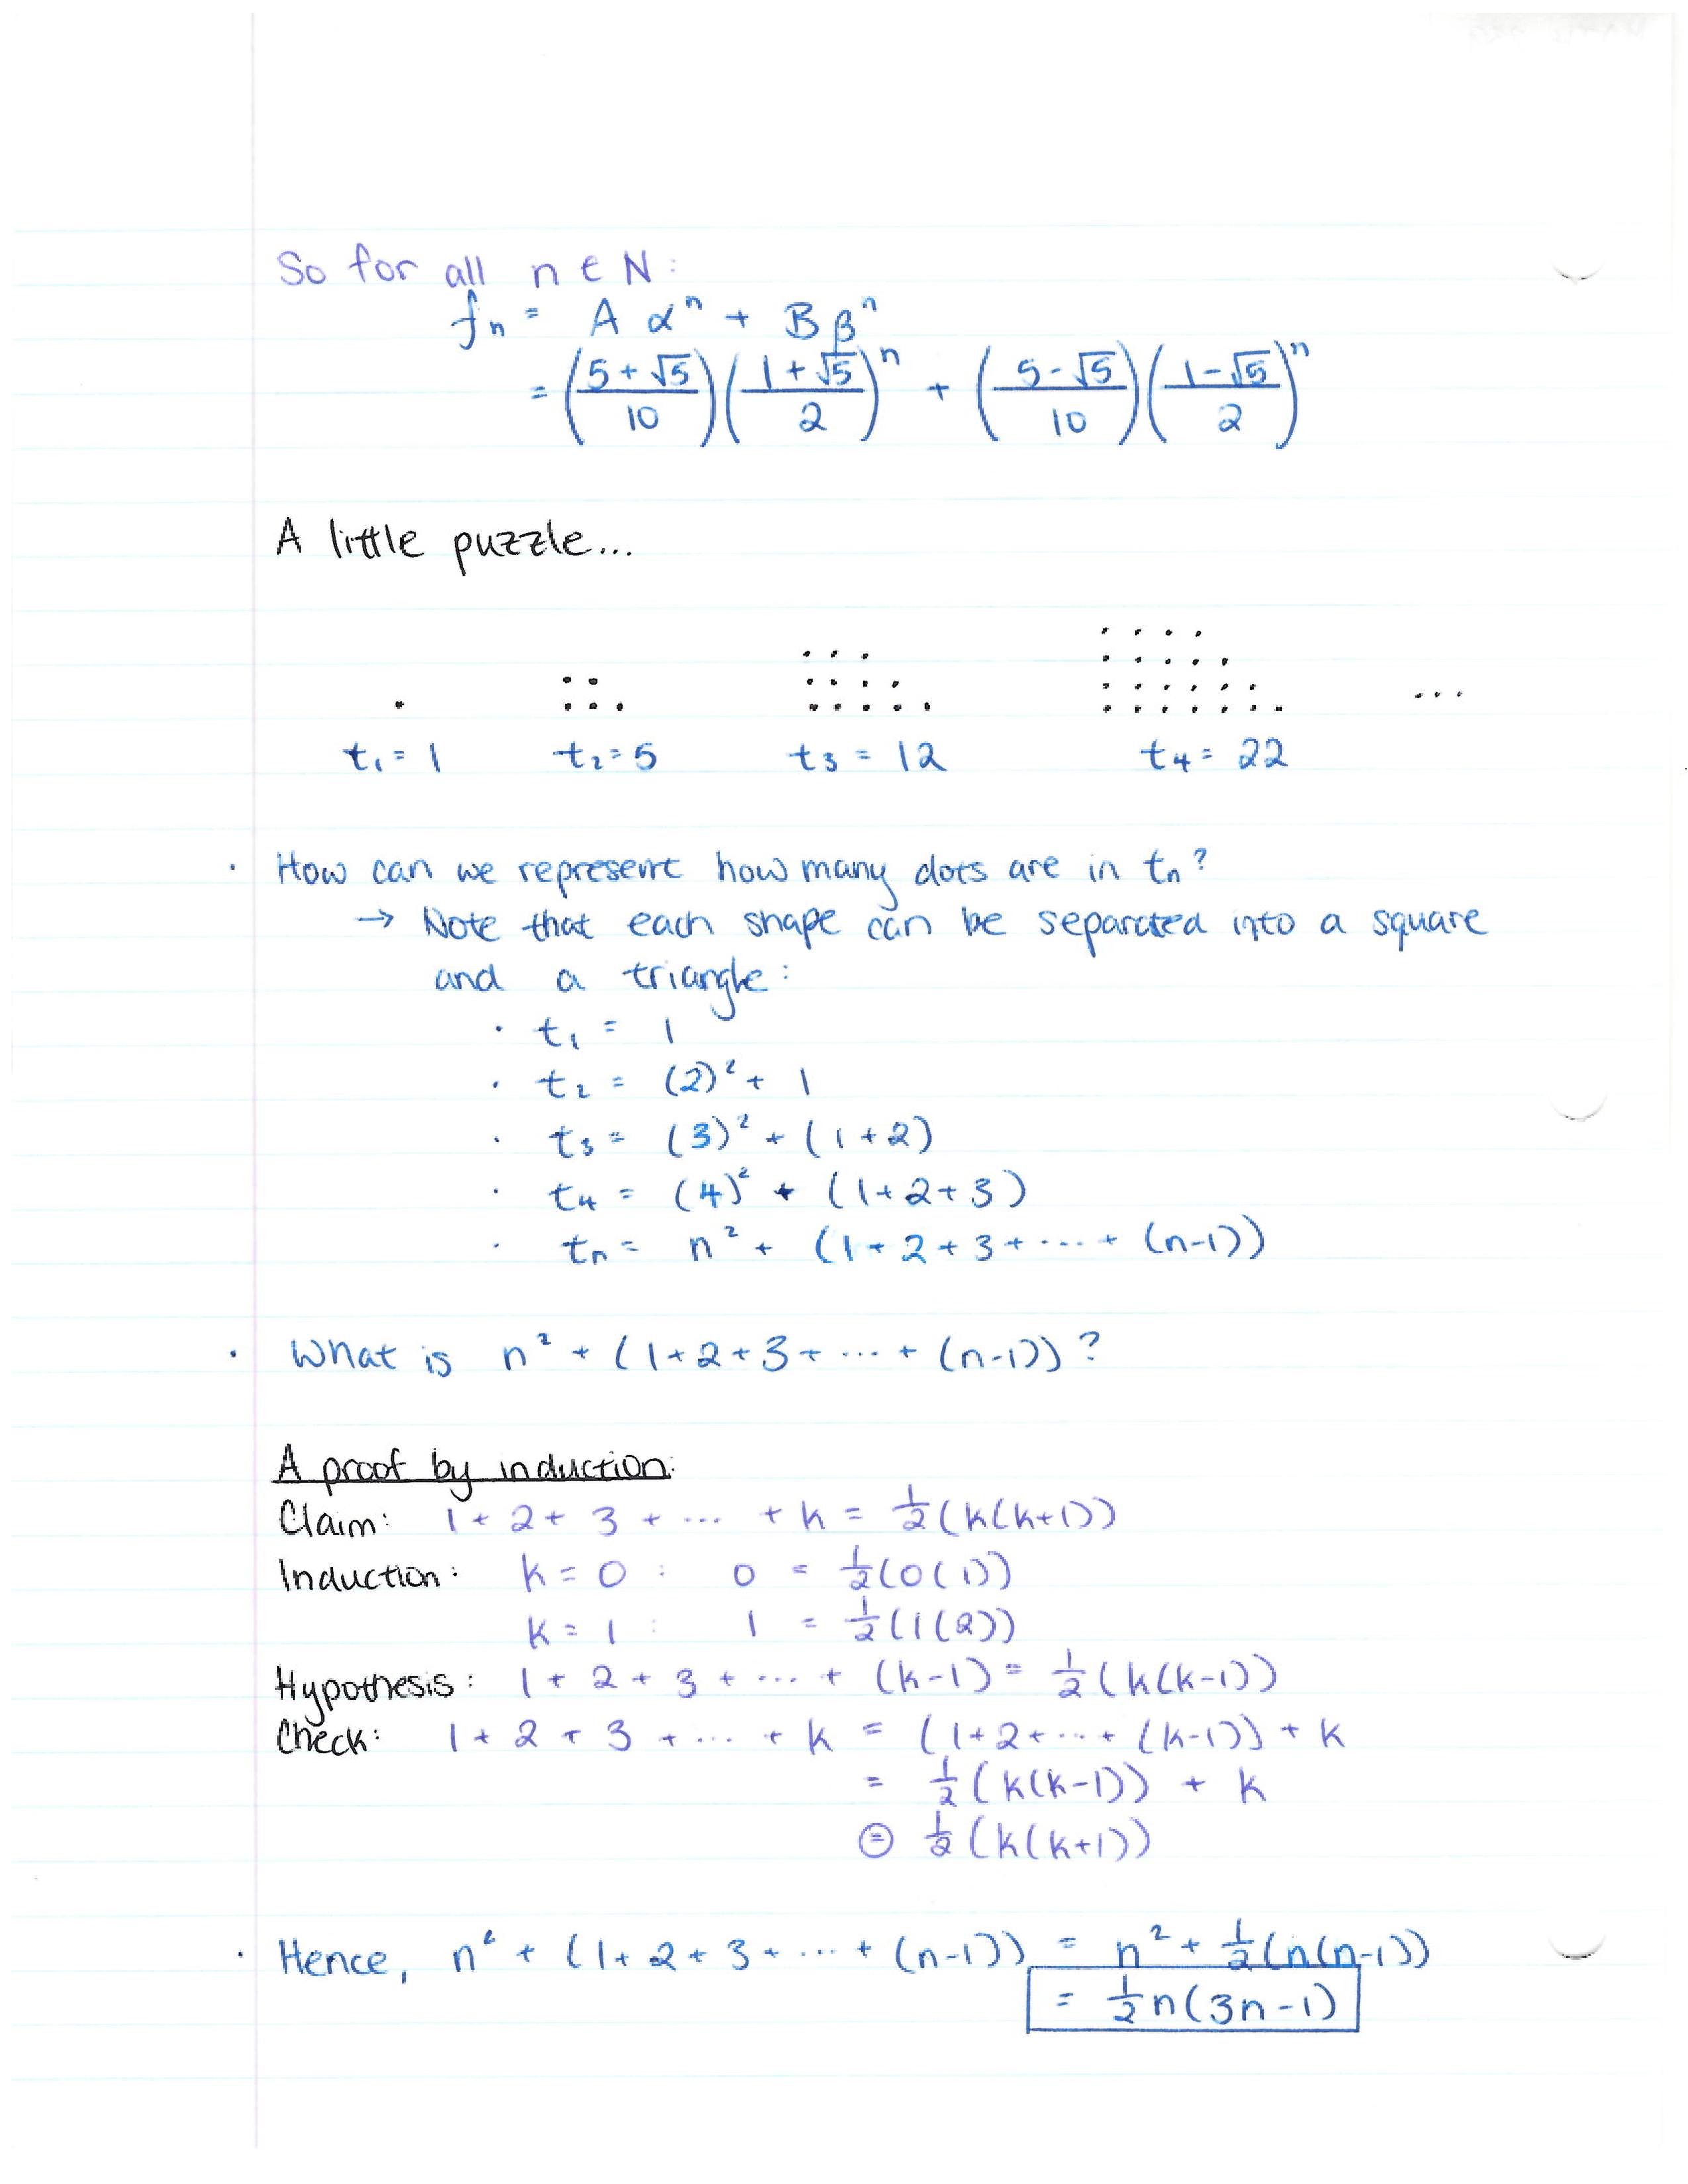 So for all n ∈ N:
fn = A αⁿ + B βⁿ
= ((5+√5)/10)((1+√5)/2)ⁿ + ((5-√5)/10)((1-√5)/2)ⁿ
A little puzzle...
...
t₁ = 1 t₂ = 5 t₃ = 12 t₄ = 22
· How can we represent how many dots are in tn?
→ Note that each shape can be separated into a square
and a triangle:
· t₁ = 1
· t₂ = (2)² + 1
· t₃ = (3)² + (1+2)
· t₄ = (4)² + (1+2+3)
· tn = n² + (1+2+3+...+(n-1))
· What is n² + (1+2+3+...+(n-1))?
A proof by induction:
Claim: 1+2+3+... +k = ½(k(k+1))
Induction: k=0: 0 = ½(0(1))
k=1: 1 = ½(1(2))
Hypothesis: 1+2+3+...+(k-1) = ½(k(k-1))
Check: 1+2+3+...+k = (1+2+...+(k-1))+k
= ½(k(k-1)) + k
⊜ ½(k(k+1))
· Hence, n² + (1+2+3+...+(n-1)) = n² + ½(n(n-1))
= ½n(3n-1)